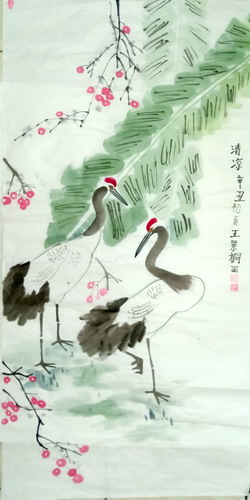 清凉 辛丑初夏 王景桐画